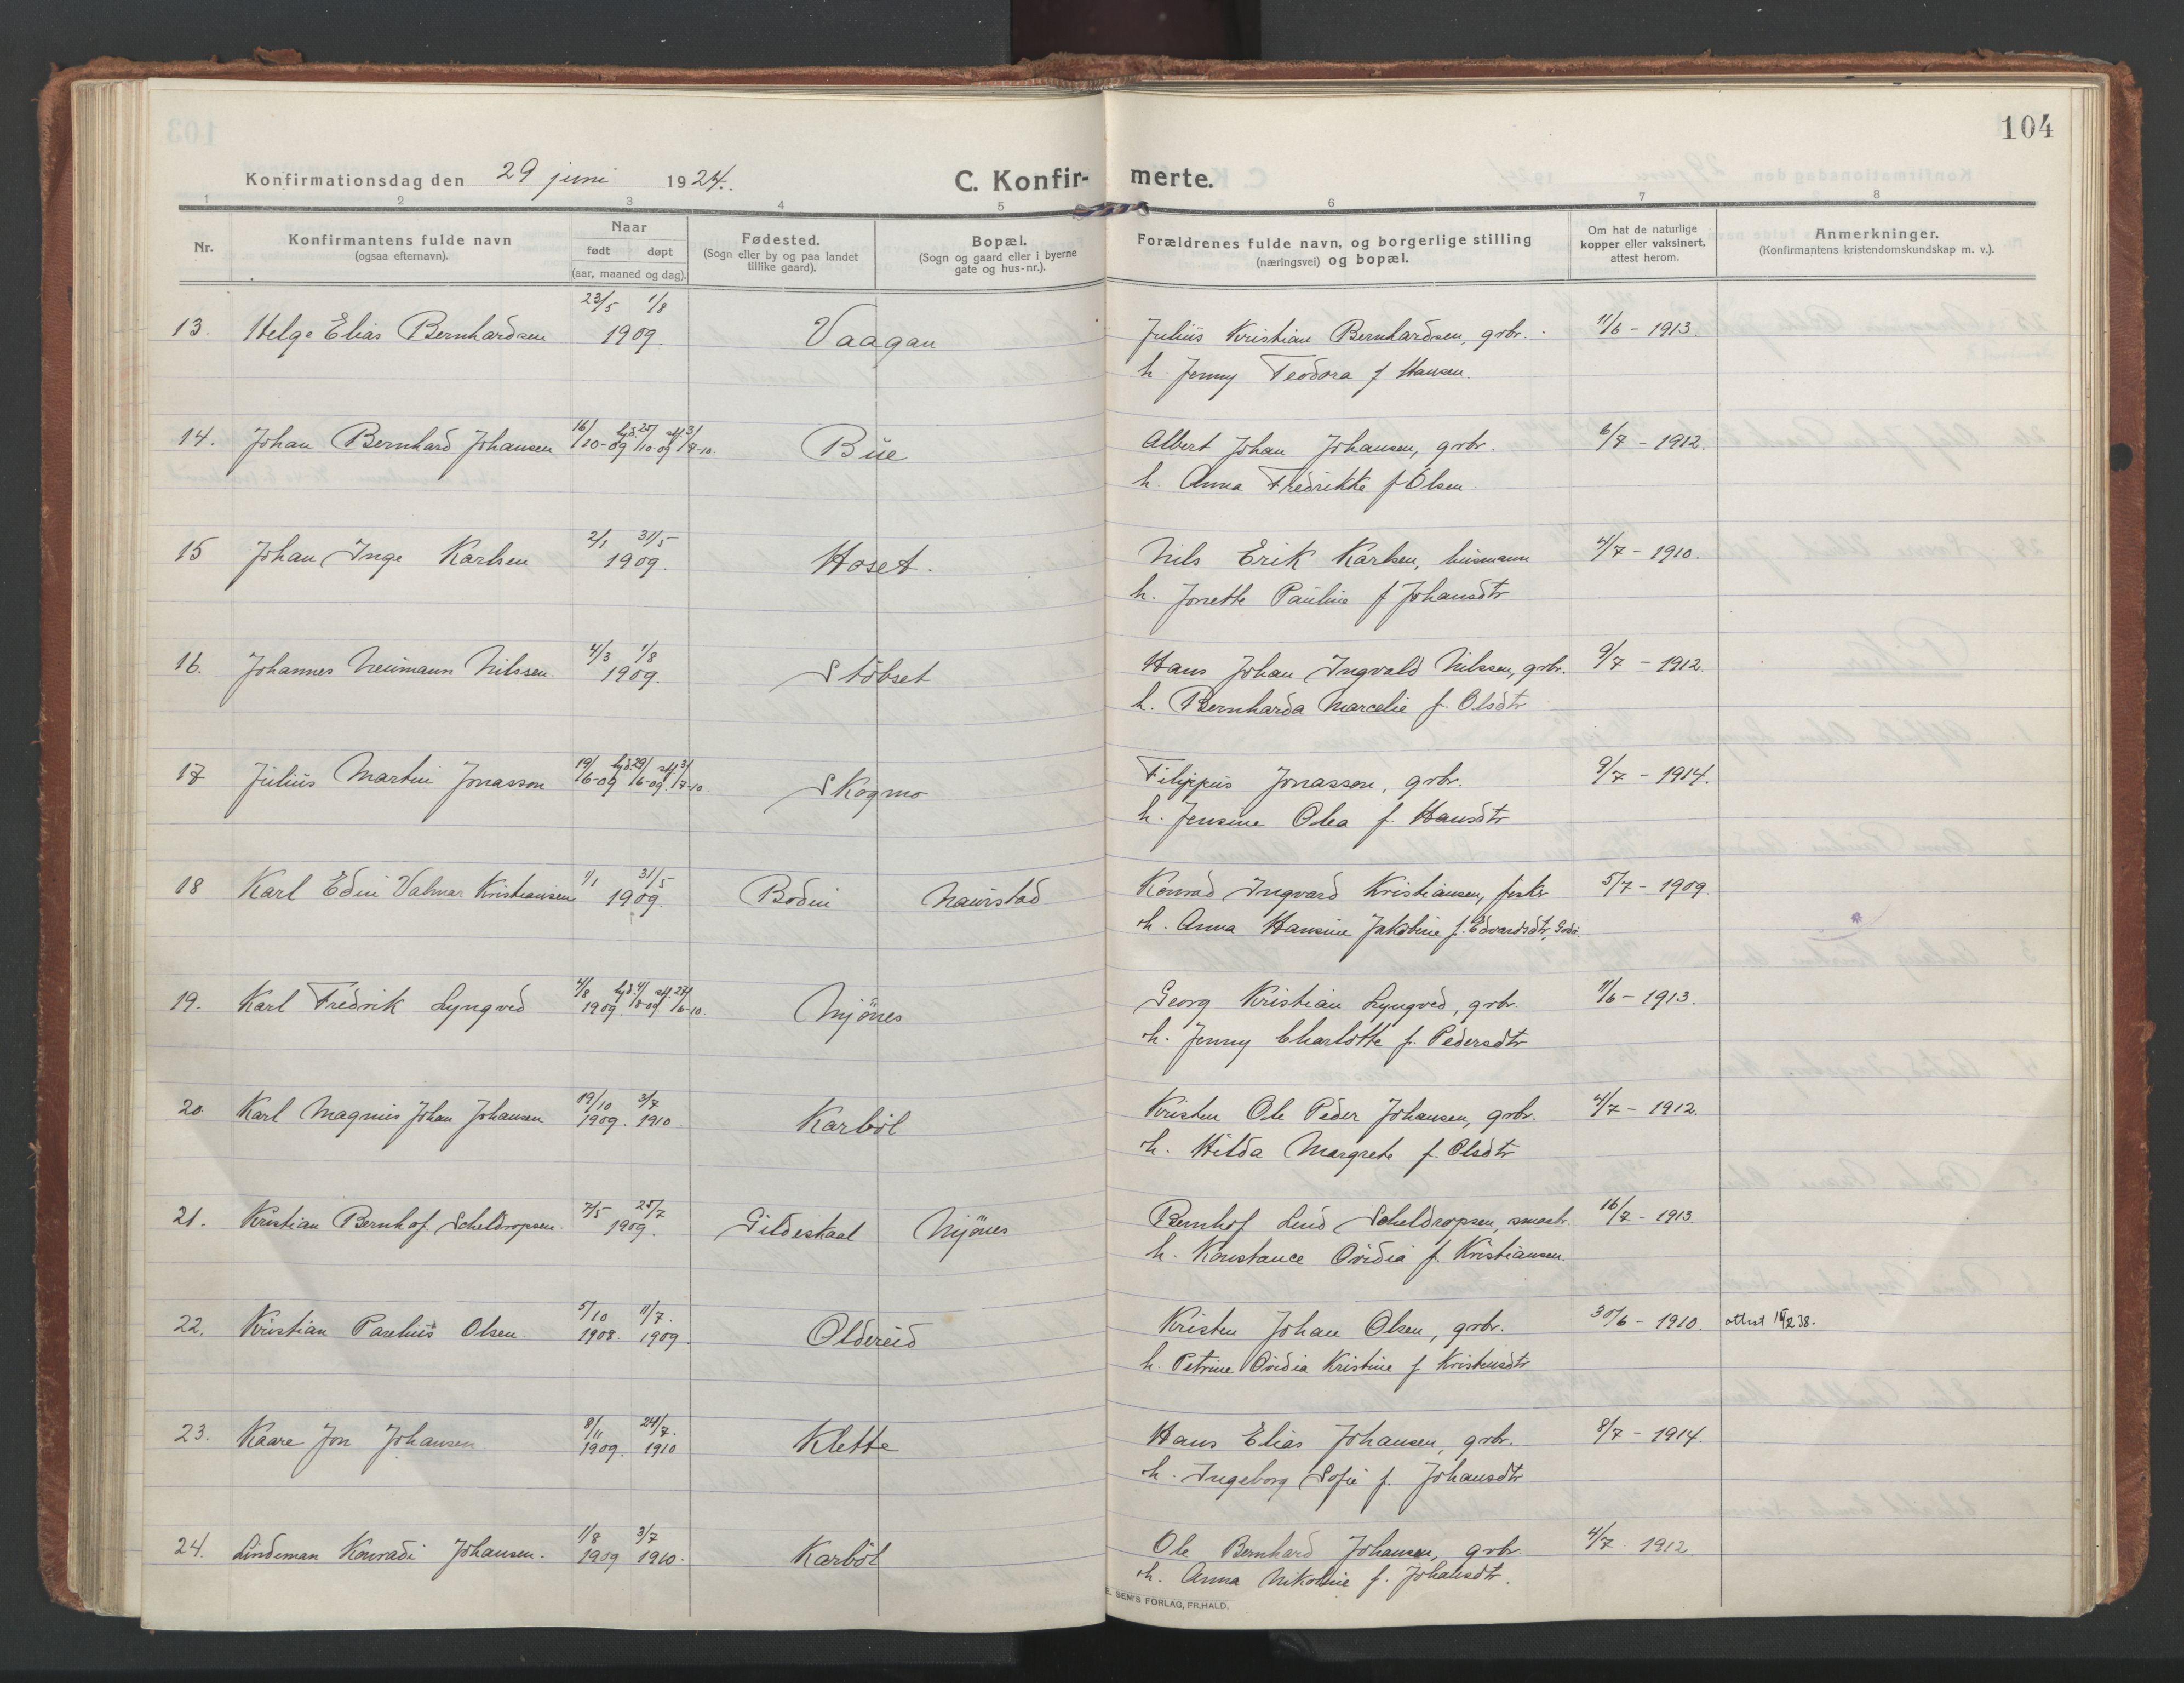 104
Konfirmationsdag den 29 juni 1924.
C. Konfirmerte.
1 2 3 4 5 6 7 8
Nr.
Konfirmantens fulde navn
(ogsaa efternavn).
Naar
født døpt
(aar, maaned og dag).
Fødested.
(Sogn eller by og paa landet
tillike gaard).
Bopæl.
(Sogn og gaard eller i byerne
gate og hus-nr.).
Forældrenes fulde navn, og borgerlige stilling
(næringsvei) og bopæl.
Om hat de naturlige
kopper eller vaksinert,
attest herom.
Anmerkninger.
(Konfirmantens kristendomskundskap m. v.).
23/5 1/8
13. Helge Elias Bernhardsen 1909. Vaagan Julius Kristian Bernhardsen, grbr. 11/6 - 1913.
h. Jenny Teodora f Hansen.
14. Johan Bernhard Johansen 16/10-09 hjd. 25/10-09 stf. 3/7-10. Bue Albert Johan Johansen, grbr. 6/7 - 1912.
h. Anna Fredrikke f Olsen.
2/1 31/5
15 Johan Inge Karlsen 1909. Hoset. Nils Erik Karlsen, husmann 4/7 - 1910.
h. Jonette Pauline f Johansdtr
4/3 1/8
16. Johannes Neumann Nilssen. 1909. Støbset Hans Johan Ingvald Nilssen, grbr. 9/7 - 1912.
h. Bernharda Marcelie f. Olsdtr
17 Julius Martin Jonasson 19/6-09 hjd. 29/6-09 stf. 3/7-10. Skogmo Filippus Jonasson, grbr. 9/7 - 1914.
h. Jensine Olea f. Hansdtr
1/1 31/5
18 Karl Edin Valmar Kristiansen 1909. Bodin Naurstad Konrad Ingvard Kristiansen, fisker 5/7 - 1909.
h. Anna Hansine Jakobine f. Edvardsdtr, Godø.
19. Karl Fredrik Lyngved 4/8 1909. hjd. 4/8-09 stf. 27/6-10. Mjønes Georg Kristian Lyngved, grbr. 11/6 - 1913.
h. Jenny Charlotte f. Pedersdtr
19/10 3/7
20 Karl Magnus Johan Johansen 1909. 1910. Karbøl Kristen Ole Peder Johansen, grbr. 4/7 - 1912.
h. Hilda Margrete f. Olsdtr
7/5 25/7
21. Kristian Bernhof Scheldropsen. 1909. Gildeskaal Mjønes Bernhof Lind Scheldropsen, smaabr. 16/7 - 1913.
h. Konstance Ovidia f. Kristiansen.
5/10 11/7.
22. Kristian Paselius Olsen. 1908. 1909. Oldereid Kristen Johan Olsen, grbr. 30/6 - 1910. attest
h. Petrine Ovidia Kristine f Kristensdtr
8/11 24/7.
23. Kaare Jon Johansen 1909. 1910 Klette Hans Elias Johansen, grbr. 8/7 - 1914.
h. Ingeborg Sofie f. Johansdtr
1/8 3/7
24. Lindeman Konradi Johansen. 1909 1910. Karbøl Ole Bernhard Johansen, grbr. 4/7 1912
h. Anna Nikoline f. Johansdtr.
E. SEM'S FORLAG, FR.HALD.